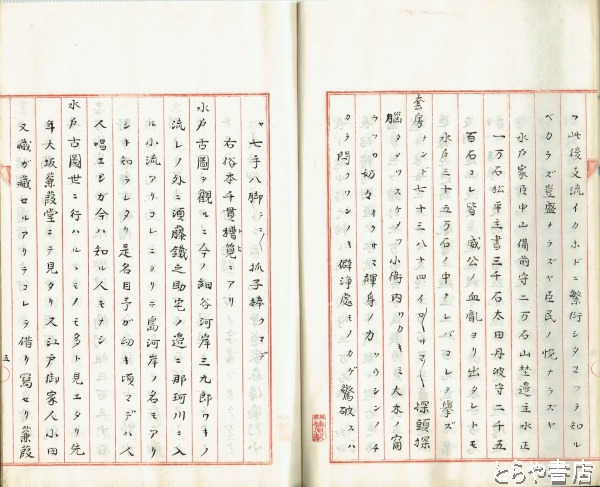 ツ此後支流イカホドニ繁衍シタマフヲ知ル
ベカラズ豈盛ナラズヤ臣民ノ悦ナラズヤ
水戸家臣中山備前守二万石山埜邉主水正
一万石松平主書三千石太田丹波守二千五
百石コレ皆 威公ノ血胤ヨリ出タレトモ
水戸三十五万石ノ中ナレバコレヲ挙ズ
套房ナンド七十三八十四イ 探頭探
脳 小衙内ワカキミ大本ノ窩
ウツロ奶々イクサマ輝身ノカ
カラ悶 ノキ僻浄処モノカゲ驚破スハ
ヤ七手八脚 抓子棒クマデ
右俗本千貫樻筧ニアリ
水戸古圖ヲ觀ルニ今ノ細谷河岸三九郎ワキノ
流レノ外ニ須藤鐵之助宅ノ邉ニ那珂川ニ入
ル小流アリコレニヨリテ島河岸ノ名モアリ
シト知ラレタリ是名目予が幼キ頃マデハ人
人唱エシガ今ハ知ル人モナシ
水戸古圖世ニ行ハルヽモノモ多ト見エタリ先
年大坂蒹葭堂ニテ見タリ又江戸御家人小田
又藏ガ藏セルアリテコレヲ借リ寫セリ蒹葭
五
とらや書店